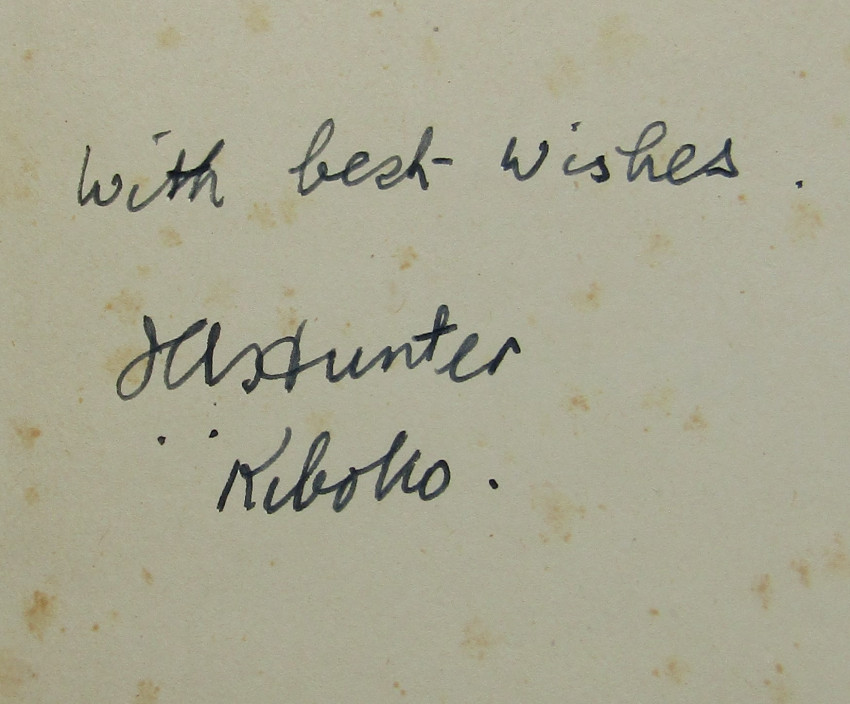 With best wishes.
JA Hunter
Kiboko.